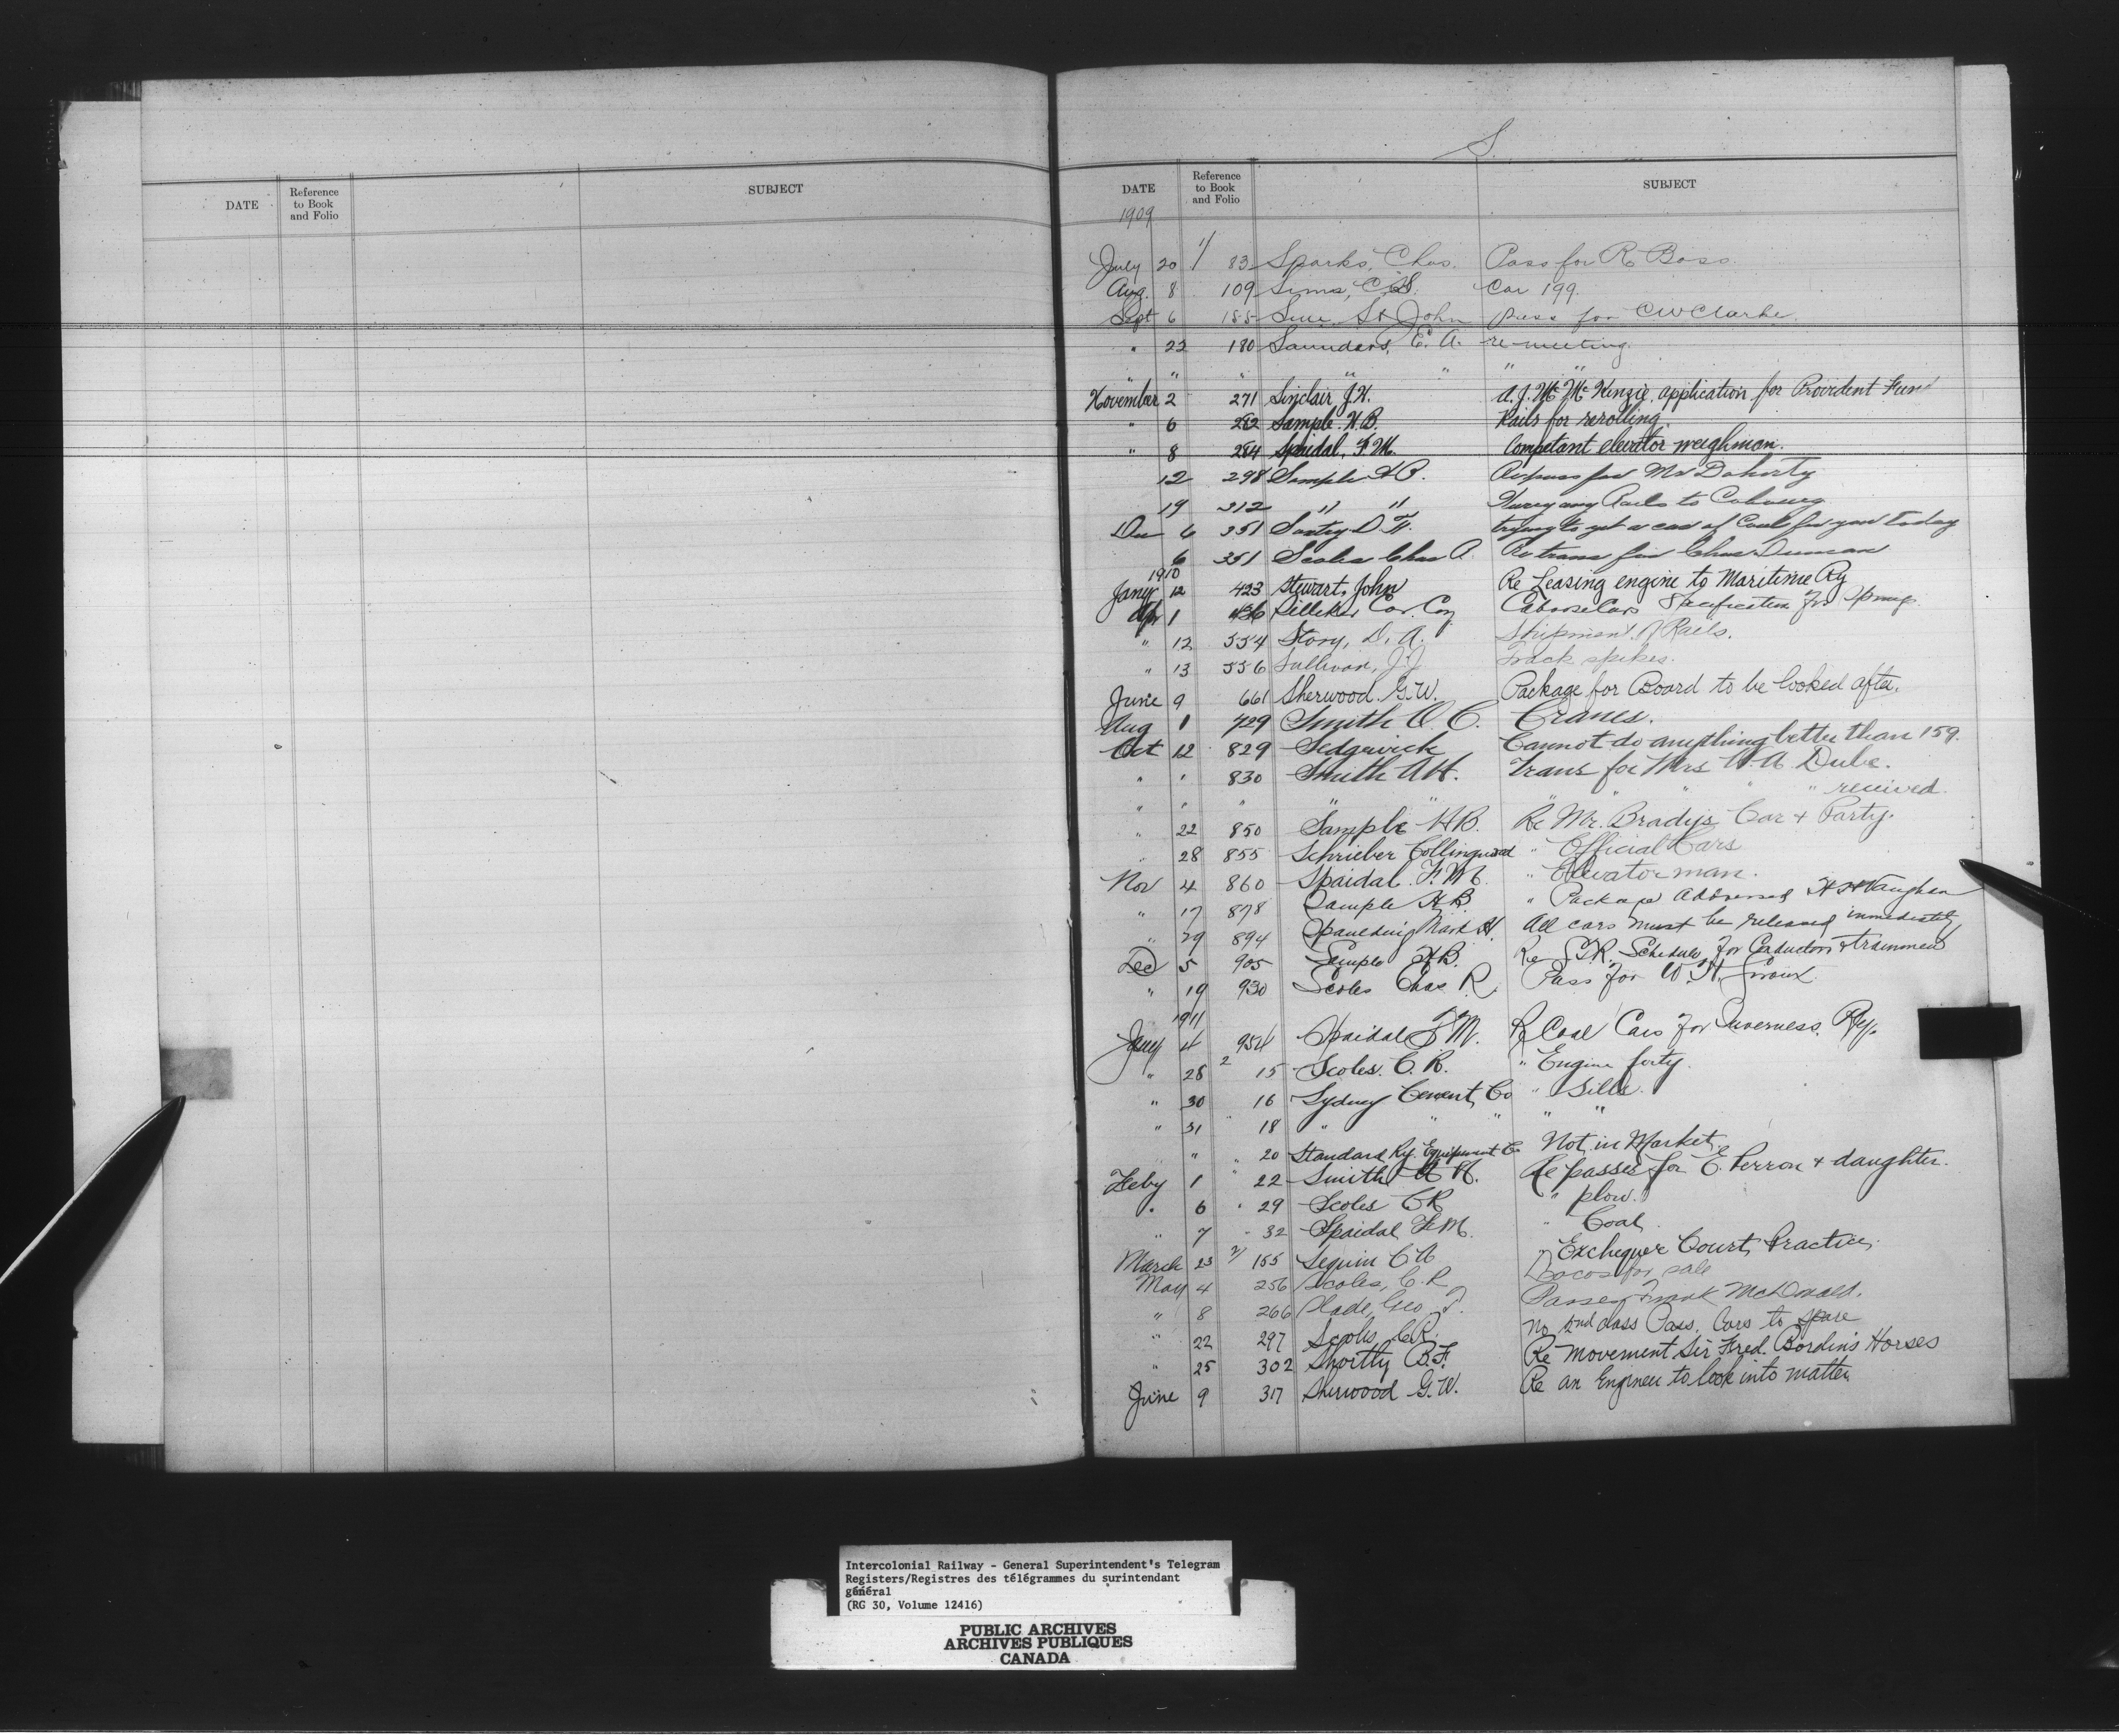 DATE Reference to Book and Folio SUBJECT
S.
DATE Reference to Book and Folio SUBJECT
1909
July 20 1/ 83 Sparks, Chas. Pass for R Bass.
Aug. 8 109 Sims, C.S. Car 199.
Sept 6 155 St John Pass for CW Clarke.
" 22 180 Saunders, E. A. re meeting.
" " " " " " "
November 2 271 Sinclair J.H. A.J. Mc McKenzie, application for Provident Fund
" 6 282 Sample. H.B. Rails for rerolling.
" 8 284 Spaidal, F.M. Competant elevator weighman.
12 298 Sample H B. Re pass for Mr Doherty
19 312 " " Hurrying Rails to Cobourg
Dec 6 351 D. H. trying to get a car of Coal for you today
6 351 Scoles Chas A. Re trans for Chas Duncan
1910
Jany 12 423 Stewart, John Re Leasing engine to Maritime Ry
Apr 1 536 Silliker Car Coy Caboose Cars Specification for Springs.
" 12 554 Story, D. A. Shipment of Rails.
" 13 556 Sullivan, J.J. Track spikes.
June 9 661 Sherwood G.W. Package for Board to be looked after.
Aug 1 729 Smith O C. Cranes.
Oct 12 829 Sedgewick Cannot do anything better than 159.
" " 830 Smith AH. Trans for Mrs W. A Dube.
" " " " " " " " " received.
" 22 850 Sample HB. Re Mr. Bradys Car + Party.
" 28 855 Schrieber Collingwood " Official Cars
Nov 4 860 Spaidal. F.M. " Elevator man.
" 17 878 Sample H.B. " Package addressed H H Vaughan
" 29 894 Spaulding Mark H. All cars must be released immediately
Dec 5 905 Sample H.B. Re Schedule for Conductors + trainmen
" 19 930 Scoles Chas R. Pass for W. H. Giroux.
1911
Jany 4 954 Spaidal F M. Re Coal Cars for Inverness. Ry.
" 28 2 15 Scoles. C. R. " Engine forty.
" 30 16 Sydney Cement Co " Sills.
" 31 " 18 " " " " "
" " 20 Standard Ry. Equipment Co Not in Market.
Feby 1 " 22 Smith A H. Re passes for E. Perron + daughter.
" 6 " 29 Scoles CR " plow.
" 7 " 32 Spaidal F.M. " Coal.
March 23 2/ 155 Seguin C A " Exchequer Court Practice,
May 4 256 Scoles, C. R. Locos for sale
" 8 266 Slade, Geo. T. Passes Frank McDonald.
" 22 297 Scoles CR. No 2nd class Pass. Cars to spare
" 25 302 Shortly B.F. Re movement Sir Fred. Bordin's Horses
June 9 317 Sherwood G.W. Re an Engineer to look into matter.
Intercolonial Railway - General Superintendent's Telegram
Registers/Registres des télégrammes du surintendant
général
(RG 30, Volume 12416)
PUBLIC ARCHIVES
ARCHIVES PUBLIQUES
CANADA